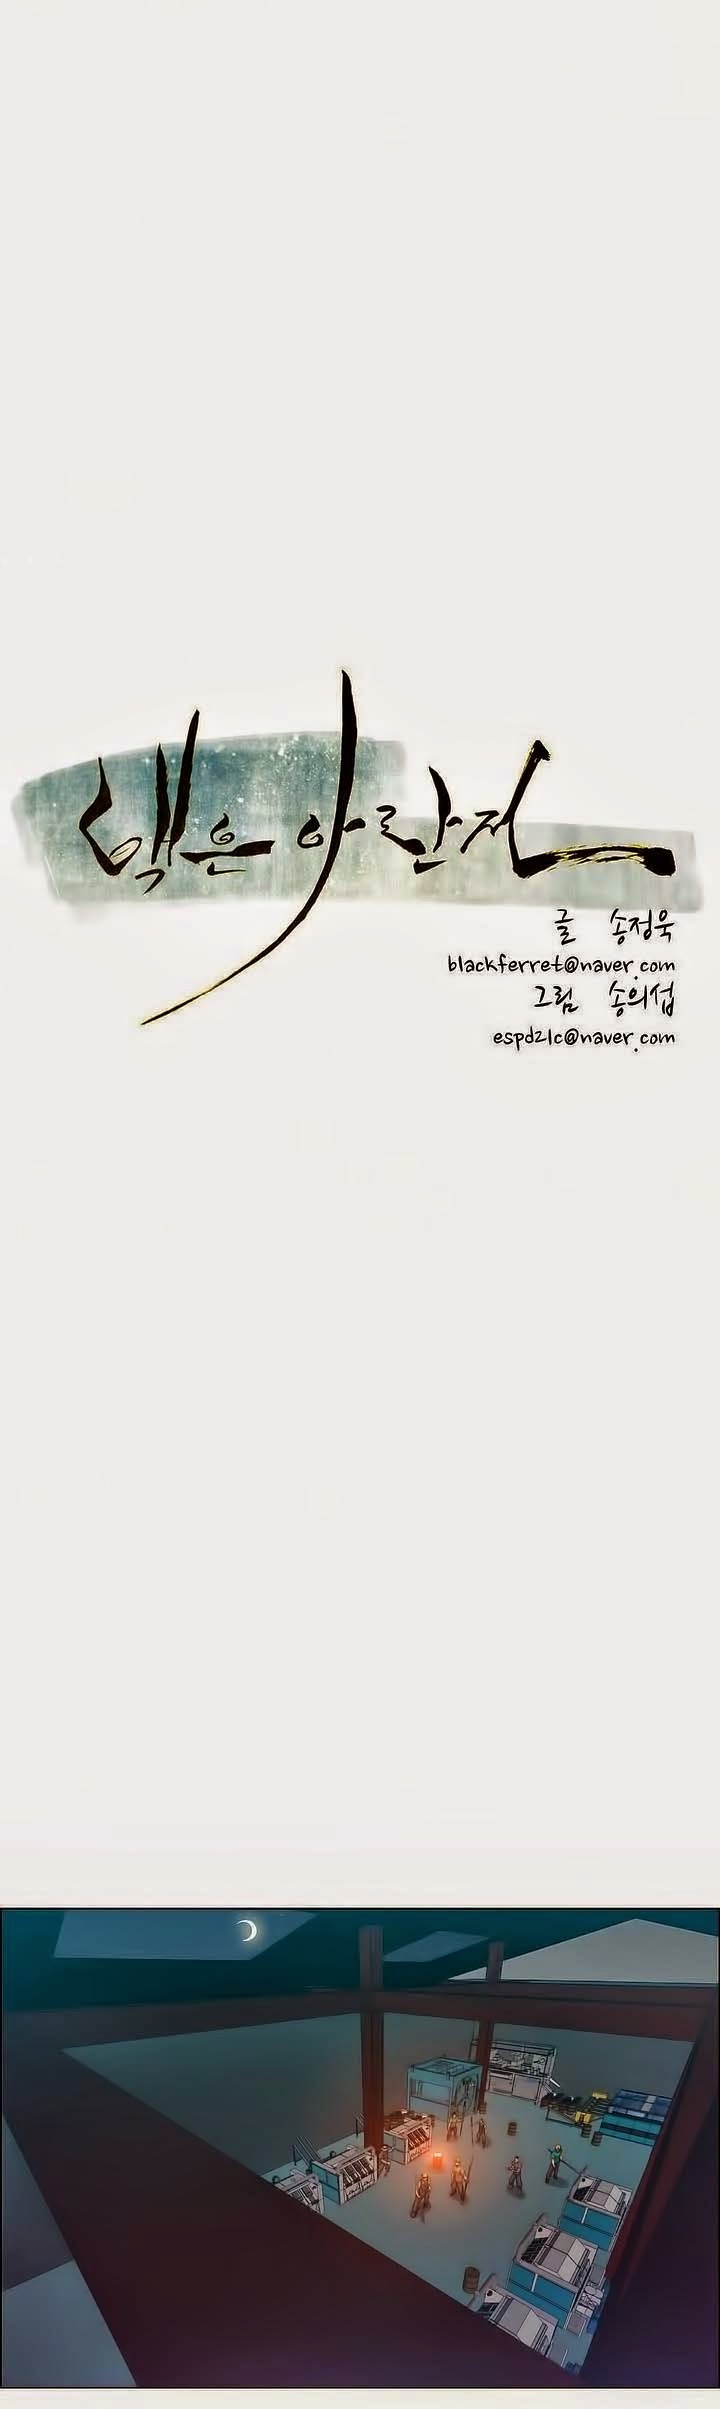 맺은아란저
글 송정욱
blackferret@naver.com
그림 송의섭
espd21c@naver.com